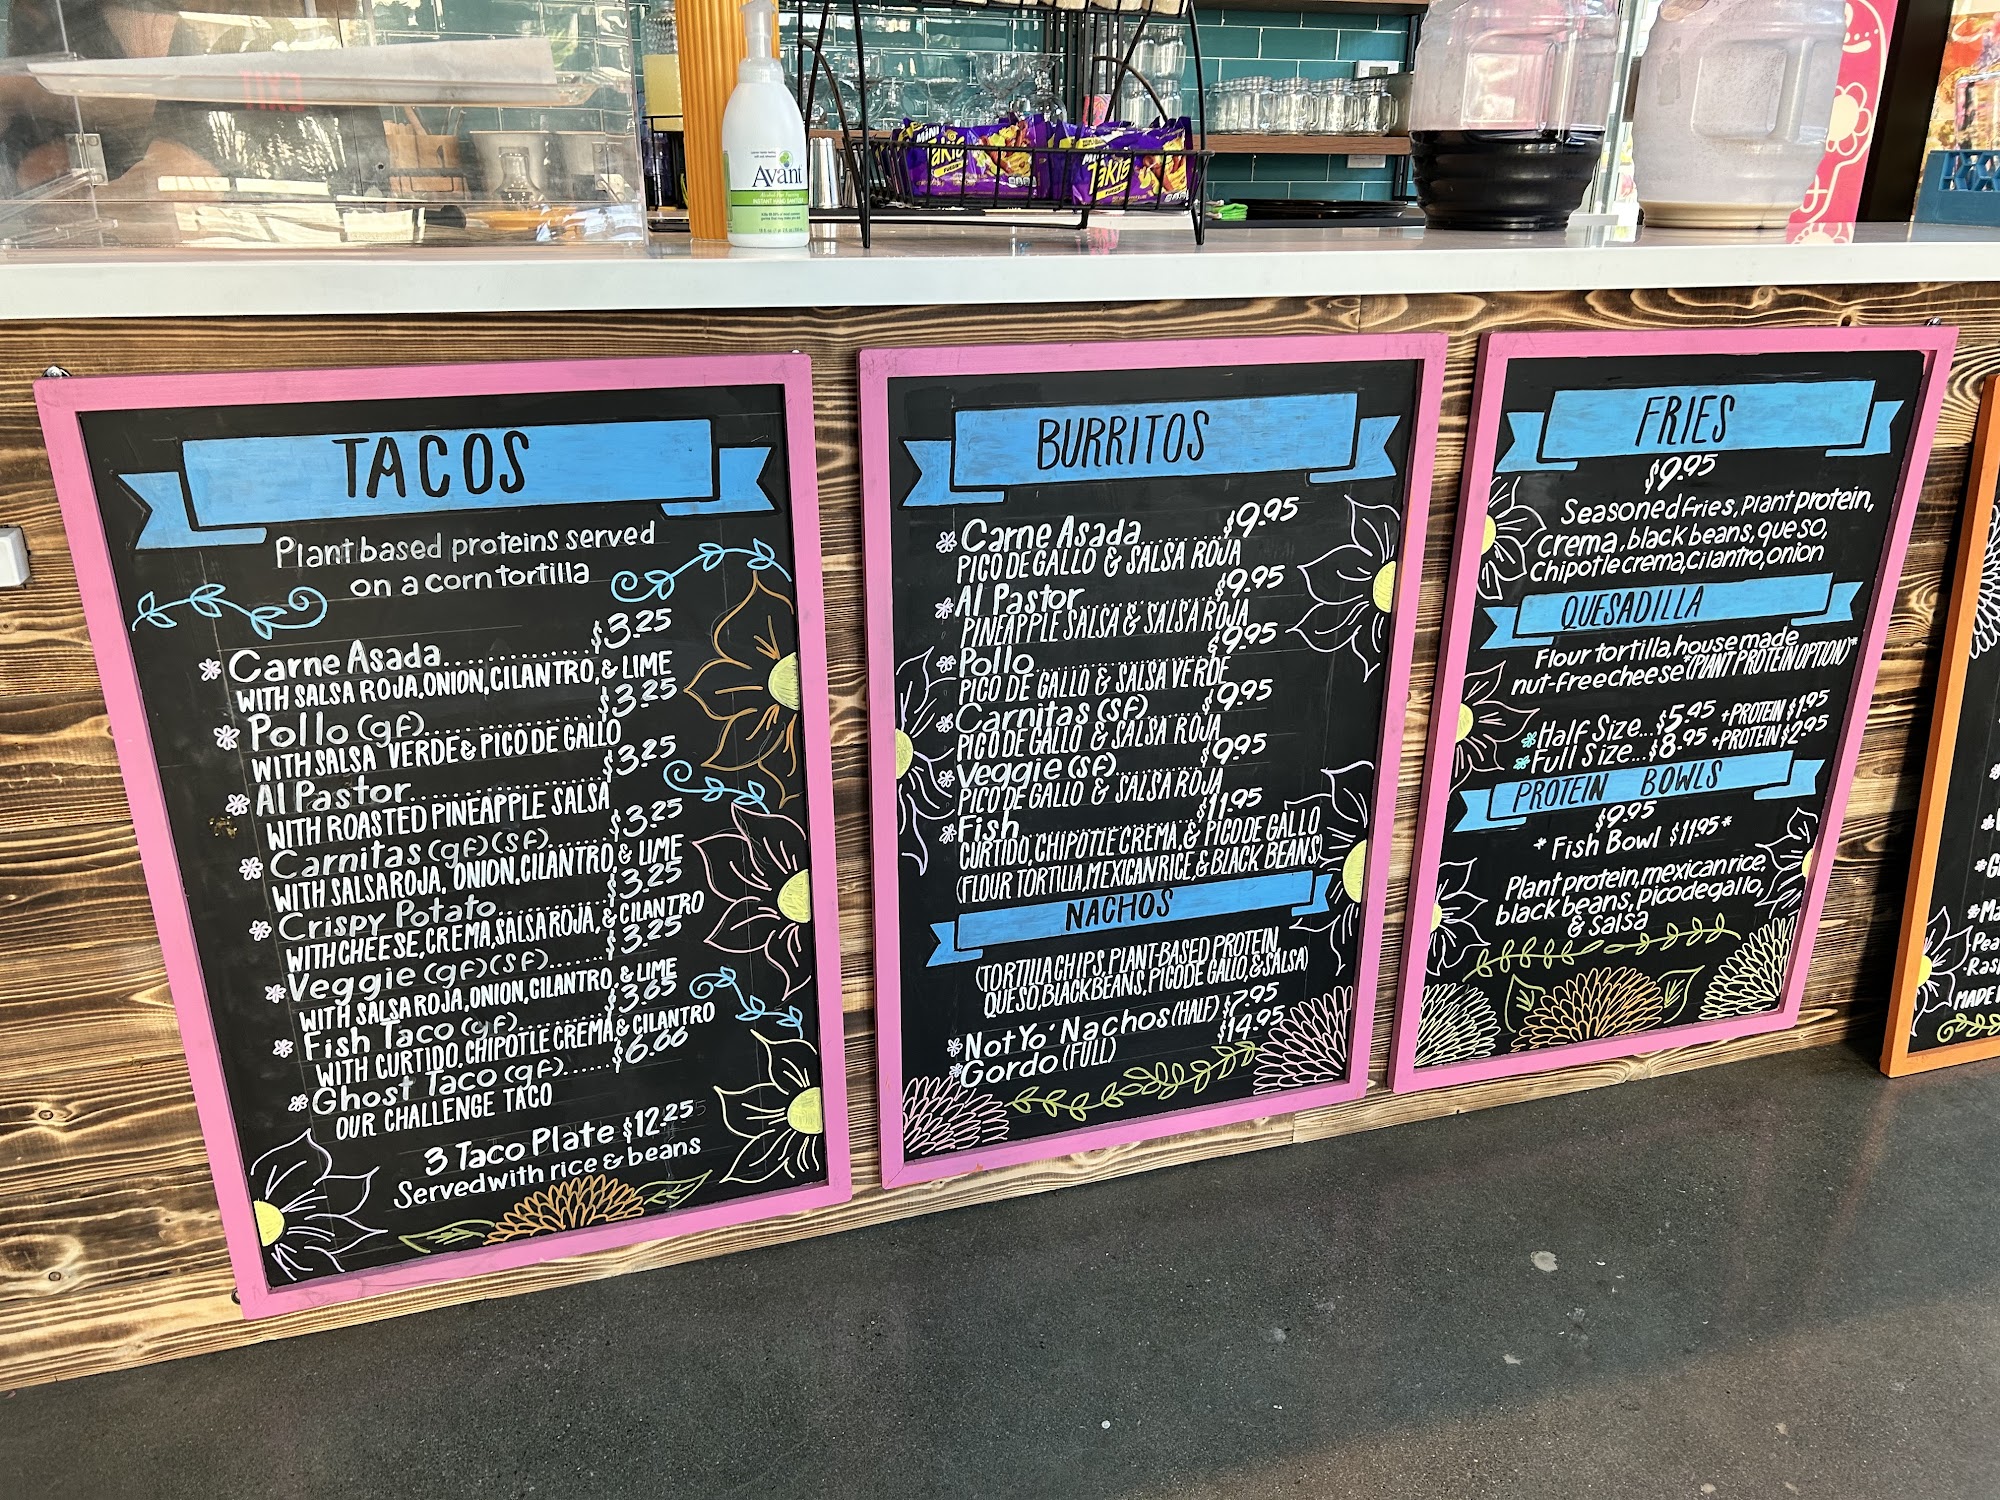 EXIT
Avant
INSTANT HAND SANITIZER
MINI
Takis
FUEGO
MINI
Takis
FUEGO
TACOS
Plant based proteins served
on a corn tortilla
Carne Asada....................$3.25
WITH SALSA ROJA, ONION, CILANTRO, & LIME
Pollo (gf)....................$3.25
WITH SALSA VERDE & PICO DE GALLO
Al Pastor....................$3.25
WITH ROASTED PINEAPPLE SALSA
Carnitas (gf)(sf)........$3.25
WITH SALSA ROJA, ONION, CILANTRO, & LIME
Crispy Potato............$3.25
WITH CHEESE, CREMA, SALSA ROJA, & CILANTRO
Veggie (gf)(sf)..........$3.25
WITH SALSA ROJA, ONION, CILANTRO, & LIME
Fish Taco (gf)............$3.65
WITH CURTIDO, CHIPOTLE CREMA & CILANTRO
Ghost Taco (gf)......$6.66
OUR CHALLENGE TACO
3 Taco Plate $12.25
Served with rice & beans
BURRITOS
Carne Asada..........$9.95
PICO DE GALLO & SALSA ROJA
Al Pastor................$9.95
PINEAPPLE SALSA & SALSA ROJA
Pollo......................$9.95
PICO DE GALLO & SALSA VERDE
Carnitas (sf)........$9.95
PICO DE GALLO & SALSA ROJA
Veggie (sf)............$9.95
PICO DE GALLO & SALSA ROJA
Fish......................$11.95
CURTIDO, CHIPOTLE CREMA, & PICO DE GALLO
(FLOUR TORTILLA, MEXICAN RICE, & BLACK BEANS)
NACHOS
(TORTILLA CHIPS, PLANT-BASED PROTEIN,
QUESO, BLACK BEANS, PICO DE GALLO, & SALSA)
Not Yo' Nachos (HALF) $7.95
Gordo (FULL) $14.95
FRIES
$9.95
Seasoned fries, Plant protein,
crema, black beans, queso,
Chipotle crema, cilantro, onion
QUESADILLA
Flour tortilla, house made
nut-free cheese *(PLANT PROTEIN OPTION)*
Half Size...$5.95 +PROTEIN $1.95
Full Size...$8.95 +PROTEIN $2.95
PROTEIN BOWLS
$9.95
*Fish Bowl $11.95*
Plant protein, mexican rice,
black beans, Pico de gallo,
& Salsa
MADE